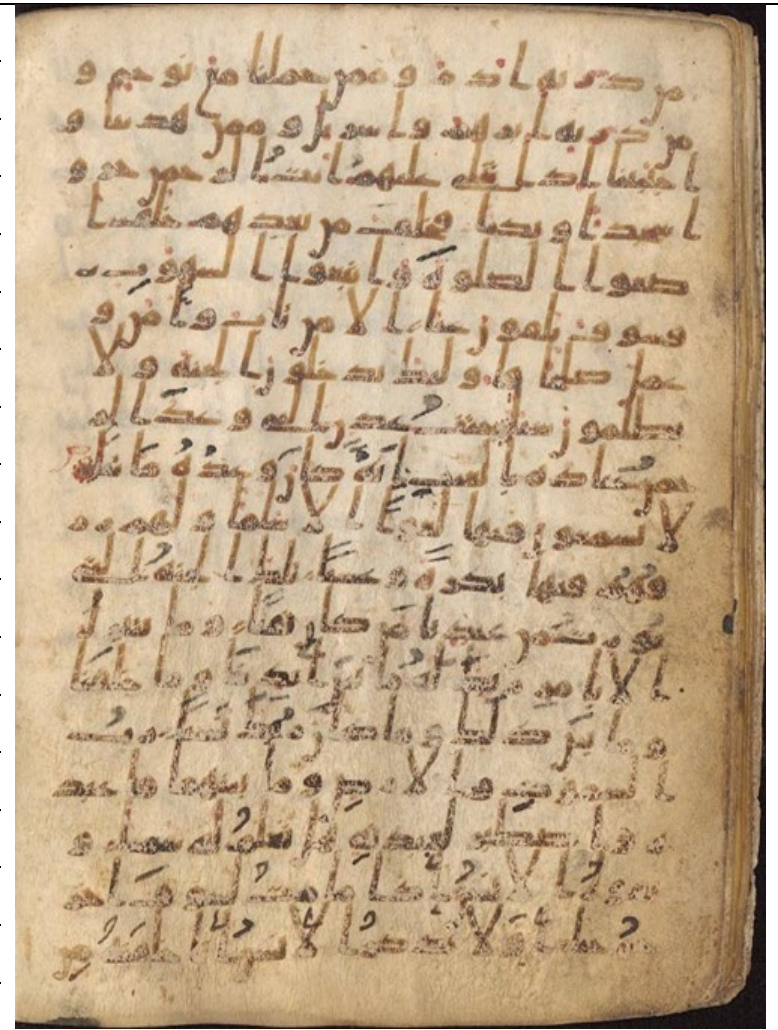 من ذرية ادم وممن حملنا مع نوح و
من ذرية ابرهيم واسريل وممن هدينا و
اجتبينا اذا تتلى عليهم ايت الرحمن خرو
ا سجدا وبكيا فخلف من بعدهم خلف ا
ضعوا الصلوة واتبعوا الشهوت
فسوف يلقون غيا الا من تاب وامن و
عمل صلحا فاوليك يدخلون الجنة ولا
يظلمون شيا جنت عدن التي وعد الر
حمن عباده بالغيب انه كان وعده ماتيا
لا يسمعون فيها لغوا الا سلما ولهم ر
زقهم فيها بكرة وعشيا تلك الجنة التي
نورث من عبادنا من كان تقيا وما نتنزل
الا بامر ربك له ما بين ايدينا وما خلفنا
وما بين ذلك وما كان ربك نسيا رب
السموت والارض وما بينهما فاعبد
ه واصطبر لعبدته هل تعلم له سميا و
يقول الانسن اذا ما مت لسوف اخر
ج حيا اولا يذكر الانسن انا خلقنه من